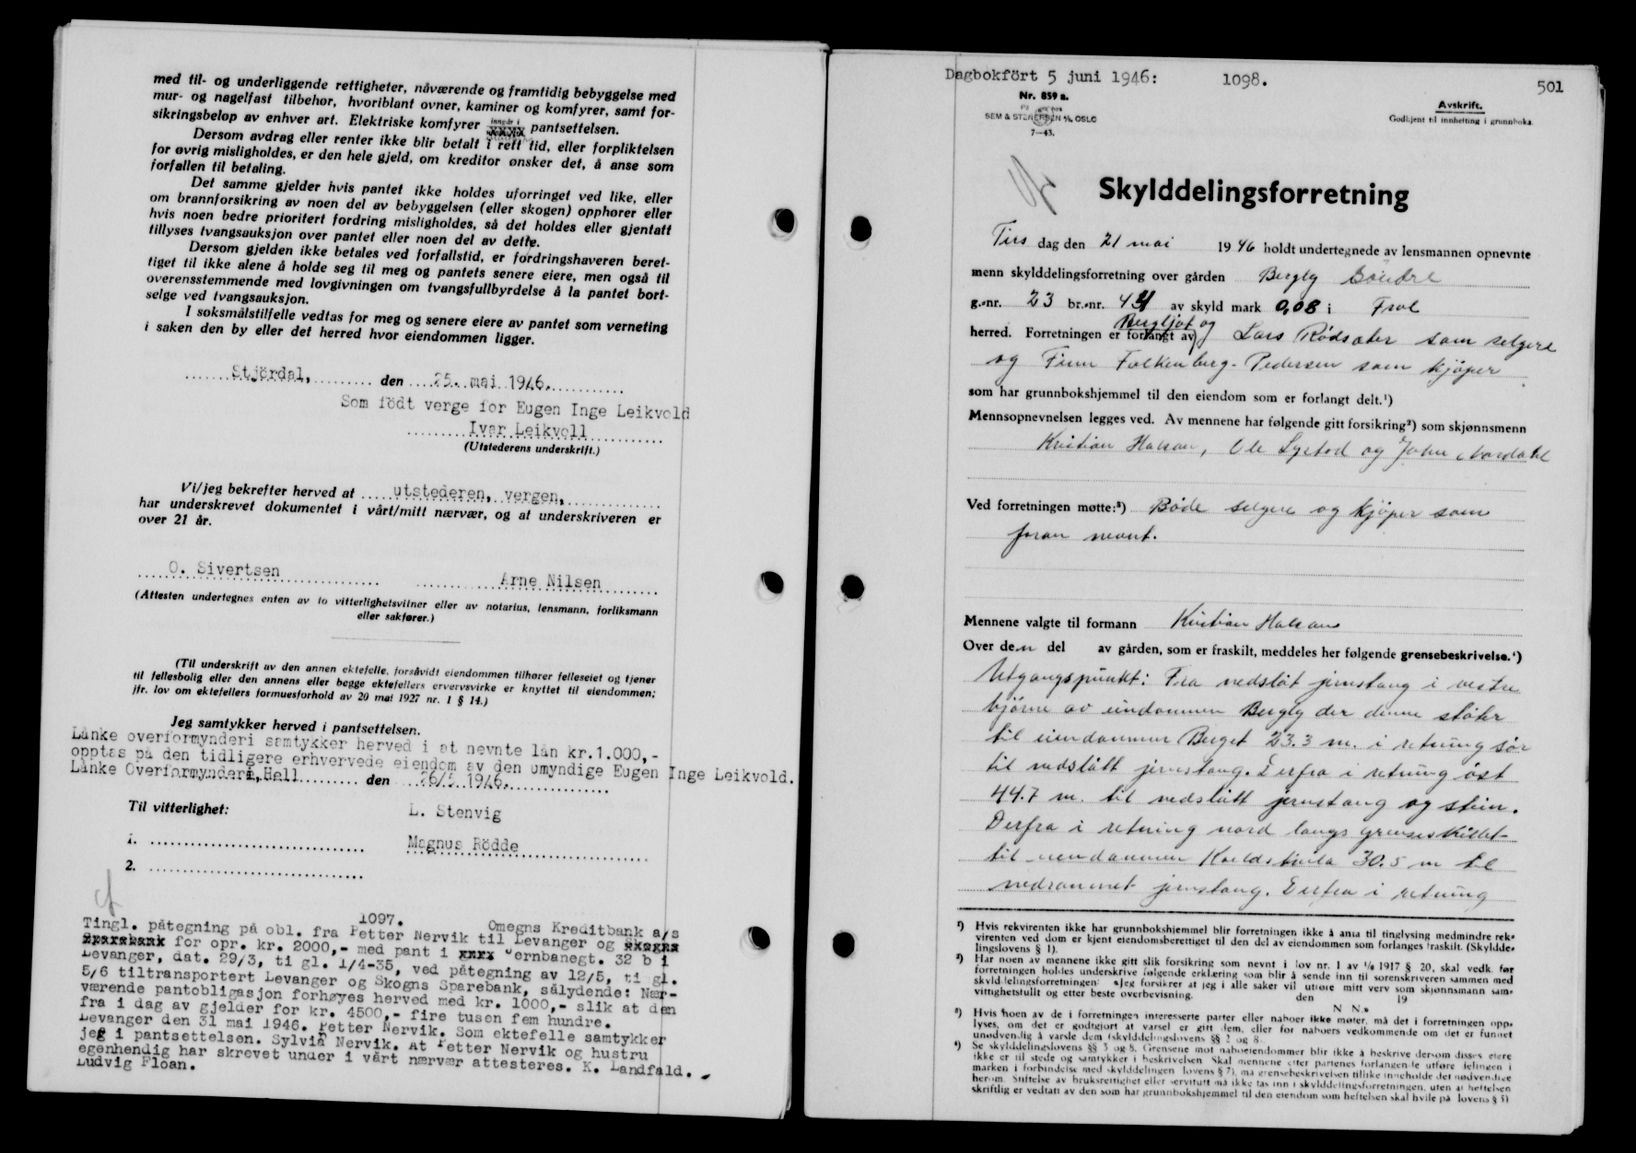 med til- og underliggende rettigheter, nåværende og framtidig bebyggelse med
mur- og nagelfast tilbehør, hvoriblant ovner, kaminer og komfyrer, samt for-
sikringsbeløp av enhver art. Elektriske komfyrer inngår i xxxx pantsettelsen.
Dersom avdrag eller renter ikke blir betalt i rett tid, eller forpliktelsen
for øvrig misligholdes, er den hele gjeld, om kreditor ønsker det, å anse som
forfallen til betaling.
Det samme gjelder hvis pantet ikke holdes uforringet ved like, eller
om brannforsikring av noen del av bebyggelsen (eller skogen) opphører eller
hvis noen bedre prioritert fordring misligholdes, så det holdes eller gjentatt
tillyses tvangsauksjon over pantet eller noen del av dette.
Dersom gjelden ikke betales ved forfallstid, er fordringshaveren beret-
tiget til ikke alene å holde seg til meg og pantets senere eiere, men også til
overensstemmende med lovgivningen om tvangsfullbyrdelse å la pantet bort-
selge ved tvangsauksjon.
I søksmålstilfelle vedtas for meg og senere eiere av pantet som verneting
i saken den by eller det herred hvor eiendommen ligger.
Stjördal, den 25. mai 1946.
Som födt verge for Eugen Inge Leikvold
Ivar Leikvoll
(Utstederens underskrift.)
Vi/jeg bekrefter herved at utstederen, vergen,
har underskrevet dokumentet i vårt/mitt nærvær, og at underskriveren er
over 21 år.
O. Sivertsen Arne Nilsen
(Attesten undertegnes enten av to vitterlighetsvitner eller av notarius, lensmann, forliksmann
eller sakfører.)
(Til underskrift av den annen ektefelle, forsåvidt eiendommen tilhører felleseiet og tjener
til fellesbolig eller den annens eller begge ektefellers ervervsvirke er knyttet til eiendommen;
jfr. lov om ektefellers formuesforhold av 20 mai 1927 nr. 1 § 14.)
Jeg samtykker herved i pantsettelsen.
Lånke overformynderi samtykker herved i at nevnte lån kr.1.000,-
opptas på den tidligere erhvervede eiendom av den umyndige Eugen Inge Leikvold.
Lånke Overformynderi, Hell den 26/5 1946.
Til vitterlighet: L. Stenvig
1. Magnus Rödde
2.
1097.
Tingl. påtegning på obl. fra Petter Nervik til Levanger og Omegns Kreditbank a/s
for opr. kr. 2000,- med pant i xxxx Jernbanegt. 32 b i
Levanger, dat. 29/3, ti gl. 1/4-35, ved påtegning av 12/5, ti gl.
5/6 tiltransportert Levanger og Skogns Sparebank, sålydende: Nær-
værende pantobligasjon forhøyes herved med kr. 1000,- slik at den
fra i dag av gjelder for kr. 4500,- fire tusen fem hundre.
Levanger den 31 mai 1946. Petter Nervik. Som ektefelle samtykker
jeg i pantsettelsen. Sylvia Nervik. At Petter Nervik og hustru
egenhendig har skrevet under i vårt nærvær attesteres. K. Landfald.
Ludvig Floan.
Dagbokfört 5 juni 1946: 1098. 501
Nr. 859 a.
SEM & STENERSEN A/S, OSLO
7—43.
Avskrift.
Godkjent til innhefting i grunnboka.
Skylddelingsforretning
Tirs dag den 21 mai 1946 holdt undertegnede av lensmannen opnevnte
menn skylddelingsforretning over gården Bergly Söndre
g.-nr. 23 br.-nr. 44 av skyld mark 0,08 i Frol
Bergljot og
herred. Forretningen er forlangt av Lars Rödsæter som selgere
og Finn Falkenberg-Pedersen som kjøper
som har grunnbokshjemmel til den eiendom som er forlangt delt.¹)
Mennsopnevnelsen legges ved. Av mennene har følgende gitt forsikring²) som skjønnsmenn
Kristian Halsan, Ole Lystad og John Nordahl
Ved forretningen møtte:³) Både selgere og kjøper som
foran nevnt.
Mennene valgte til formann Kristian Halsan
Over den del av gården, som er fraskilt, meddeles her følgende grensebeskrivelse.⁴)
Utgangspunkt: Fra nedslåt jernstang i vestre
hjørne av eindommen Bergly der denne støter
til eiendommen Berget 23.3 m. i retning sör
til nedslått jernstang. Derfra i retning öst
44.7 m. til nedslått jernstang og stein.
Derfra i retning nord langs grenseskillet
til eiendommen 30.5 m til
nedrammet jernstang. Derfra i retning
¹) Hvis rekvirenten ikke har grunnbokshjemmel blir forretningen ikke å anta til tinglysing medmindre rek-
virenten ved dom er kjent eiendomsberettiget til den del av eiendommen som forlanges fraskilt. (Skyldde-
lingslovens § 1).
²) Har noen av mennene ikke gitt slik forsikring som nevnt i lov nr. 1 av 1/6 1917 § 20, skal vedk. før
forretningen holdes underskrive følgende erklæring som blir å sende inn til sorenskriveren sammen med
skylddelingsforretningen: «Jeg forsikrer at jeg i alle saker vil utføre mitt verv som skjønnsmann sam-
vittighetsfullt og etter beste overbevisning.
den 19
N. N.»
³) Hvis noen av de i forretningen interesserte parter eller naboer ikke møter, må det i forretningen opp-
lyses, om det er godtgjort at varsel er gitt dem, eller for naboers vedkommende om det er funnet
unødvendig å varsle dem (skylddelingslovens §§ 2 og 8.
⁴) Se skylddelingslovens §§ 3 og 8. Grensene mot naboeiendommer blir ikke å beskrive dersom disses eiere
ikke er til stede og samtykker i beskrivelsen. Skal mennene etter partenes forlangende utføre delingen i
marken i forbindelse med skylddelingen (lovens § 7), må grensebeskrivelsen tillike inneholde det nødvendige
herom. Stiftelse av bruksrettighet eller servitutt må ikke tas inn i skylddelingsforretningen, uten at heftelsen
skriftlig er vedtatt av den som har grunnbokshjemmel til den eiendom som heftelsen skal hvile på (lovens § 5)